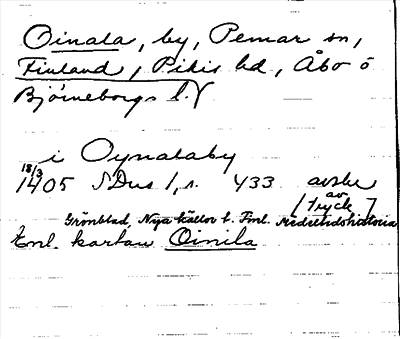 Oinala, by, Pemar sn,
Finland, Pikis hd, Åbo o
Björneborgs l.
i Oynalaby
18/3
1405 SDns 1, s. 433 avskr
av
[tryck]
Grönblad, Nya källor t. Finl. Medeltidshistoria
Enl. kartan Oinila